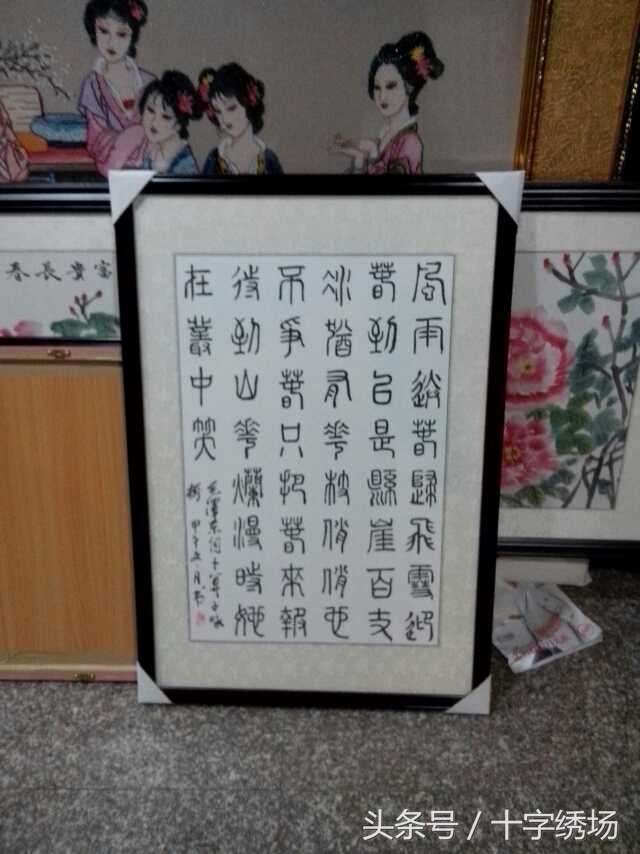 富貴長春
風雨送春歸飛雪迎
春到已是縣崖百丈
冰猶有花枝俏俏也
不爭春只把春來報
待到山花爛漫時她
在叢中笑
毛澤東詞卜算子咏
梅 甲午五月
头条号 / 十字绣场